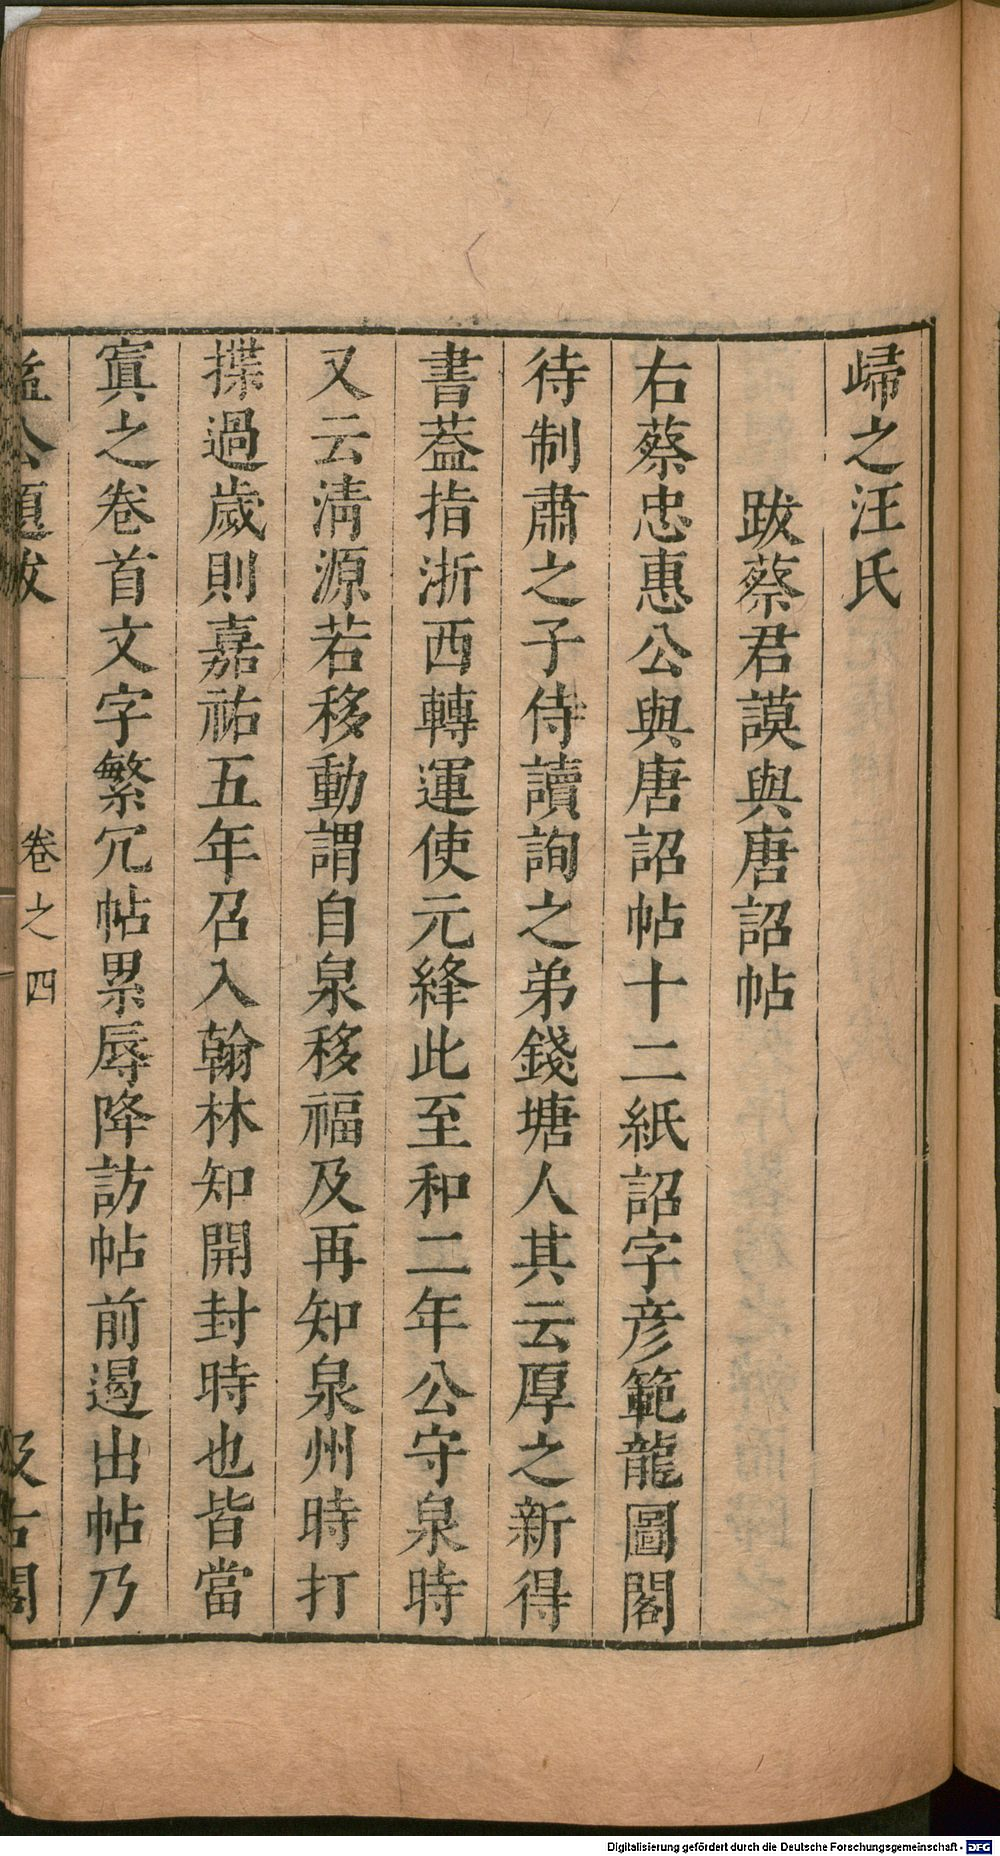 歸之汪氏
跋蔡君謨與唐詔帖
右蔡忠惠公與唐詔帖十二紙詔字彦範龍圖閣
待制肅之子侍讀詢之弟錢塘人其云厚之新得
書葢指浙西轉運使元絳此至和二年公守泉時
又云淸源若移動謂自泉移福及再知泉州時打
揲過歲則嘉祐五年召入翰林知開封時也皆當
寘之卷首文字繁冗帖累辱降訪帖前遏出帖乃
益公題跋
卷之四
汲古閣
Digitalisierung gefördert durch die Deutsche Forschungsgemeinschaft - DFG